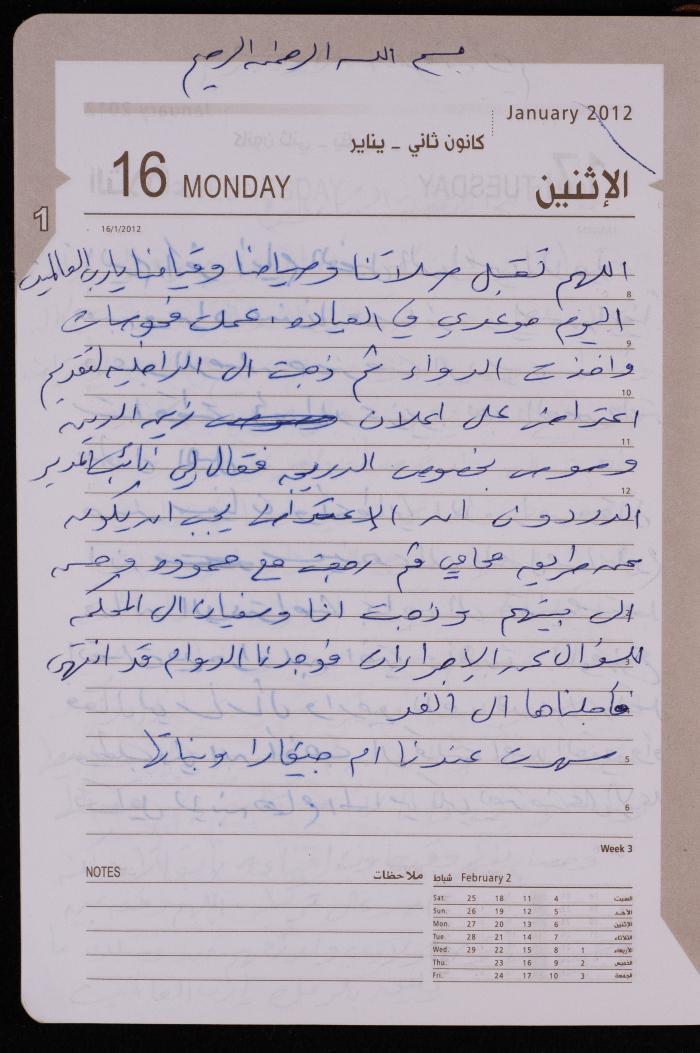 بسم الله الرحمن الرحيم
January 2012
كانون ثاني - يناير
16 MONDAY
الإثنين
1
16/1/2012
اللهم تقبل صلاتنا وصيامنا وقيامنا يا رب العالمين
8
اليوم موعدي في العيادة، عملت فحوصات
9
واخذت الدواء ثم ذهبت الى الداخلية لتقديم
10
اعتراض على اعلان
11
بخصوص فقال لي نائب المدير
12
ان الاعتراض يجب ان يكون
عن طريق محامي ثم رجعت مع حموده
الى بيتهم وذهبت انا وسفيان الى المحكمة
للسؤال عن الاجراءات فوجدنا الدوام قد انتهى
فأجلناها الى الغد
5
سهرت عندنا ام جيفارا وبناتها
6
Week 3
NOTES ملاحظات
شباط February 2
Sat. 25 18 11 4 السبت
Sun. 26 19 12 5 الأحد
Mon. 27 20 13 6 الإثنين
Tue. 28 21 14 7 الثلاثاء
Wed. 29 22 15 8 1 الأربعاء
Thu. 23 16 9 2 الخميس
Fri. 24 17 10 3 الجمعة